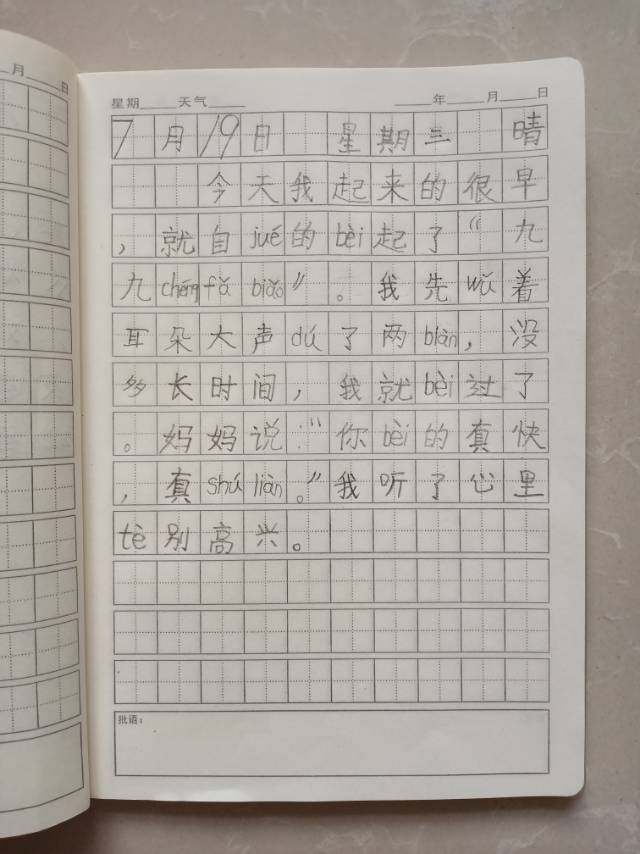 月 日
星期 天气 年 月 日
7月19日 星期三 晴
今天我起来的很早
，就自jué的bèi起了“九
九chéngfǎ biǎo”。我先wǔ着
耳朵大声dú了两biàn，没
多长时间，我就bèi过了
。妈妈说：“你bèi的真快
，真shú liàn。”我听了心里
tè别高兴。
批语：